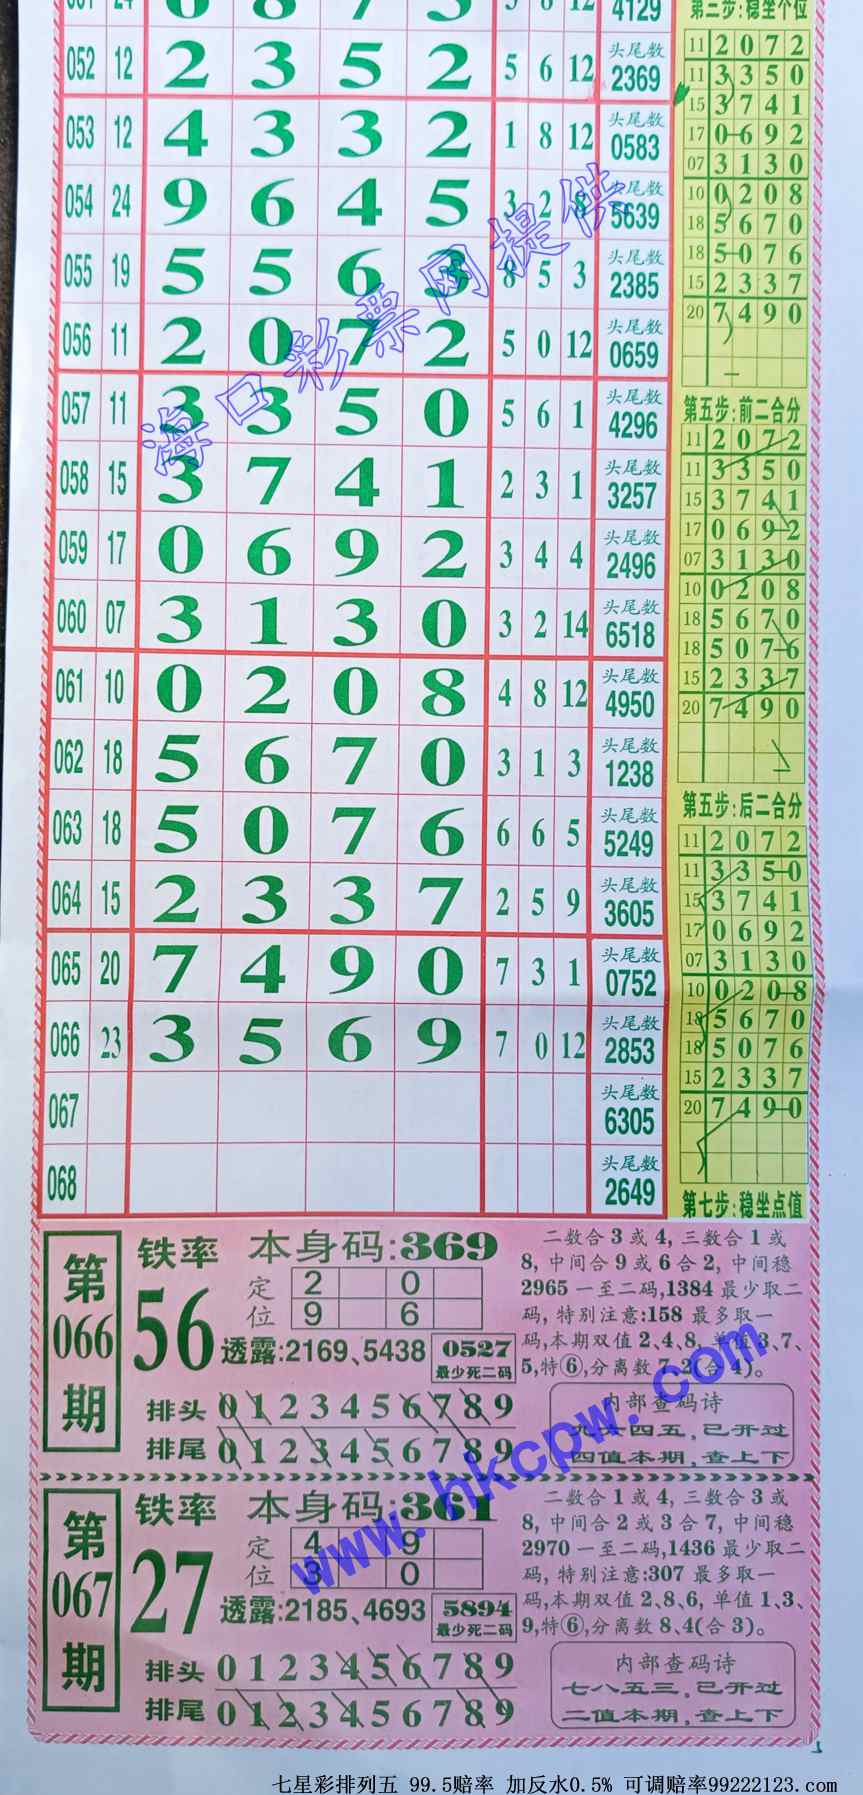 4129
052 12 2 3 5 2 5 6 12 头尾数 2369
053 12 4 3 3 2 1 8 12 头尾数 0583
054 24 9 6 4 5 3 2 8 头尾数 5639
055 19 5 5 6 3 8 5 3 头尾数 2385
056 11 2 0 7 2 5 0 12 头尾数 0659
057 11 3 3 5 0 5 6 1 头尾数 4296
058 15 3 7 4 1 2 3 1 头尾数 3257
059 17 0 6 9 2 3 4 4 头尾数 2496
060 07 3 1 3 0 3 2 14 头尾数 6518
061 10 0 2 0 8 4 8 12 头尾数 4950
062 18 5 6 7 0 3 1 3 头尾数 1238
063 18 5 0 7 6 6 6 5 头尾数 5249
064 15 2 3 3 7 2 5 9 头尾数 3605
065 20 7 4 9 0 7 3 1 头尾数 0752
066 23 3 5 6 9 7 0 12 头尾数 2853
067 头尾数 6305
068 头尾数 2649
第三步:稳坐个位
11 2 0 7 2
11 3 3 5 0
15 3 7 4 1
17 0 6 9 2
07 3 1 3 0
10 0 2 0 8
18 5 6 7 0
18 5 0 7 6
15 2 3 3 7
20 7 4 9 0
第五步:前二合分
11 2 0 7 2
11 3 3 5 0
15 3 7 4 1
17 0 6 9 2
07 3 1 3 0
10 0 2 0 8
18 5 6 7 0
18 5 0 7 6
15 2 3 3 7
20 7 4 9 0
第五步:后二合分
11 2 0 7 2
11 3 3 5 0
15 3 7 4 1
17 0 6 9 2
07 3 1 3 0
10 0 2 0 8
18 5 6 7 0
18 5 0 7 6
15 2 3 3 7
20 7 4 9 0
第七步:稳坐点值
海口彩票网提供
第066期
铁率 56
本身码:369
定位
2 0
9 6
透露:2169、5438
0527
最少死二码
排头 0 1 2 3 4 5 6 7 8 9
排尾 0 1 2 3 4 5 6 7 8 9
二数合 3 或 4, 三数合 1 或
8, 中间合 9 或 6 合 2, 中间稳
2965 一至二码,1384 最少取二
码, 特别注意:158 最多取一
码,本期双值 2、4、8, 单值 3、7、
5,特⑥,分离数 7、2(合 4)。
内部查码诗
九六四五,已开过
四值本期,查上下
www.hkcpw.com
第067期
铁率 27
本身码:361
定位
4 9
3 0
透露:2185、4693
5894
最少死二码
排头 0 1 2 3 4 5 6 7 8 9
排尾 0 1 2 3 4 5 6 7 8 9
二数合 1 或 4, 三数合 3 或
8, 中间合 2 或 3 合 7, 中间稳
2970 一至二码,1436 最少取二
码, 特别注意:307 最多取一
码,本期双值 2、8、6, 单值 1、3、
9,特⑥,分离数 8、4(合 3)。
内部查码诗
七八五三,已开过
二值本期,查上下
七星彩排列五 99.5赔率 加反水0.5% 可调赔率99222123.com